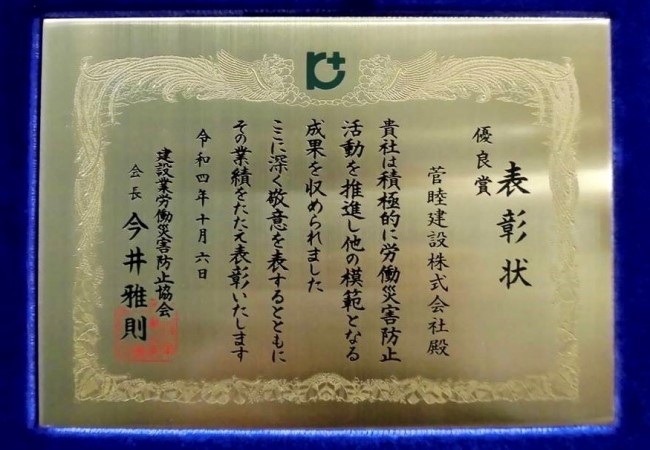 表彰状
優良賞
菅睦建設株式会社殿
貴社は積極的に労働災害防止
活動を推進し他の模範となる
成果を収められました
ここに深く敬意を表するとともに
その業績をたたえ表彰いたします
令和四年十月六日
建設業労働災害防止協会
会長 今井雅則